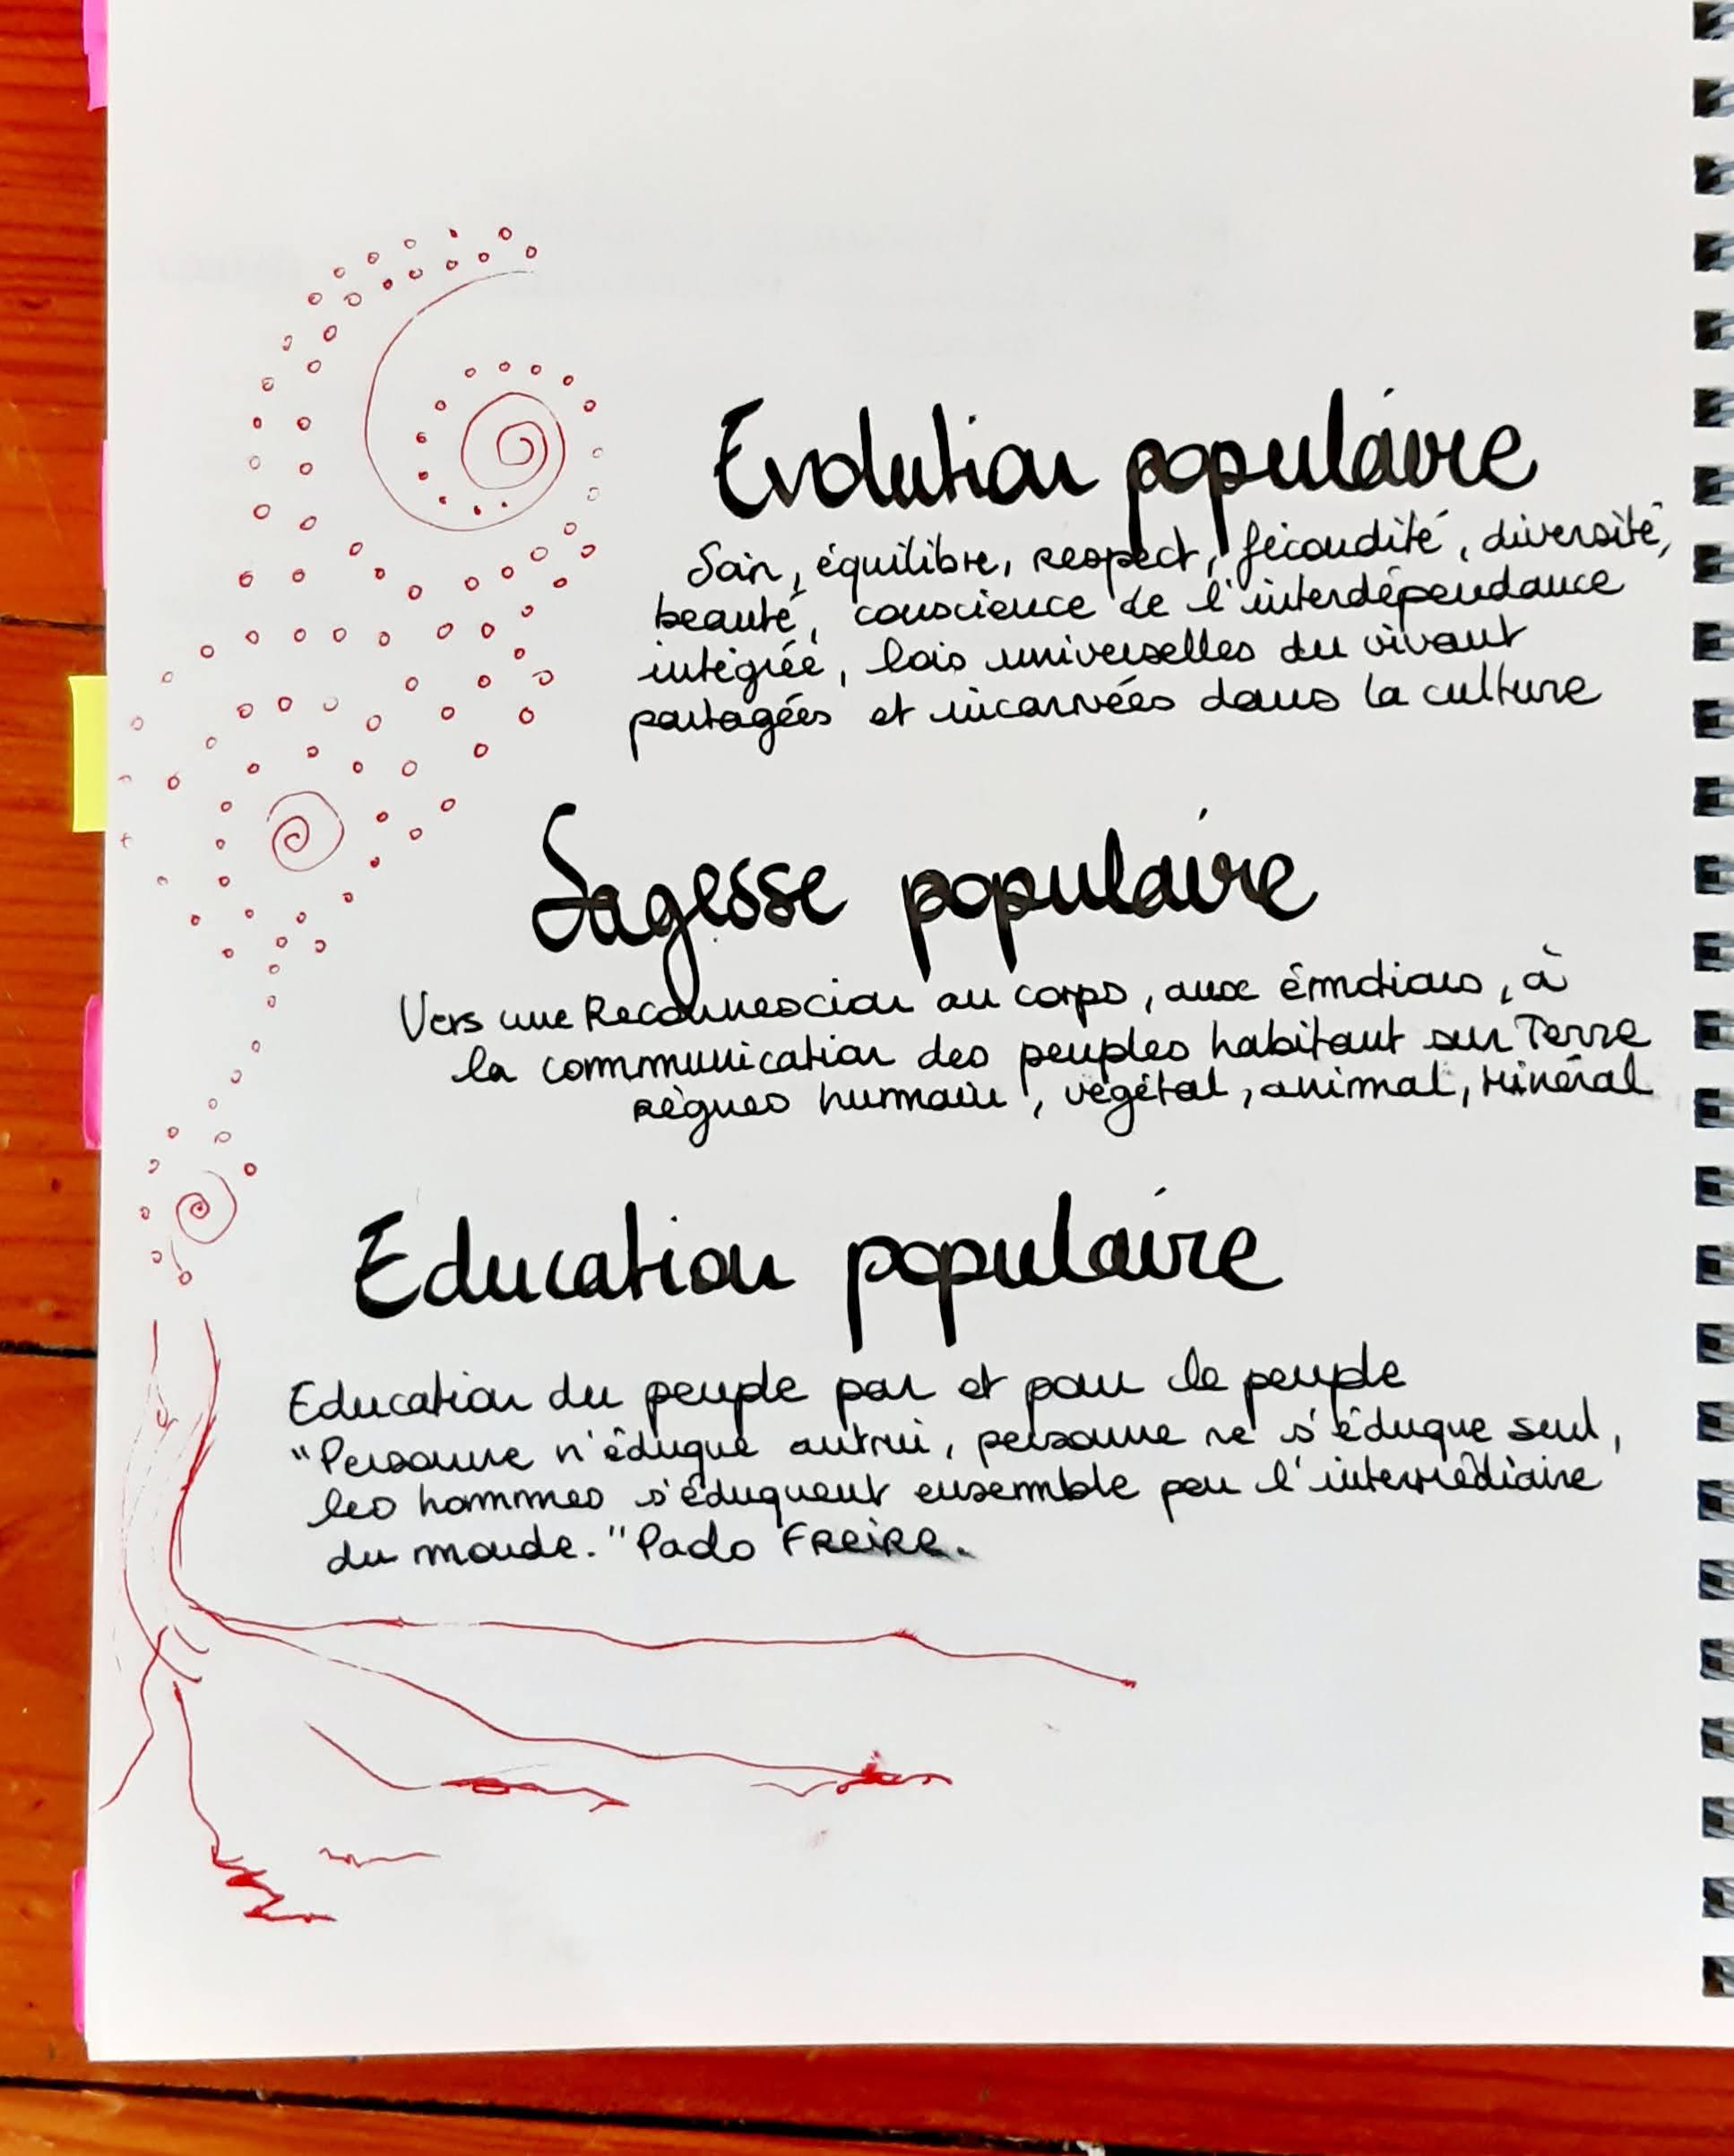 Evolution populaire
Soin, équilibre, respect, fécondité, diversité,
beauté, conscience de l'interdépendance
intégrée, lois universelles du vivant
partagées et incarnées dans la culture
Sagesse populaire
Vers une Reconnexcion au corps, aux émotions, à
la communication des peuples habitant sur Terre
règnes humain, végétal, animal, Minéral
Education populaire
Education du peuple par et pour le peuple
"Personne n'éduque autrui, personne ne s'éduque seul,
les hommes s'éduquent ensemble par l'intermédiaire
du monde." Paolo FREIRE.